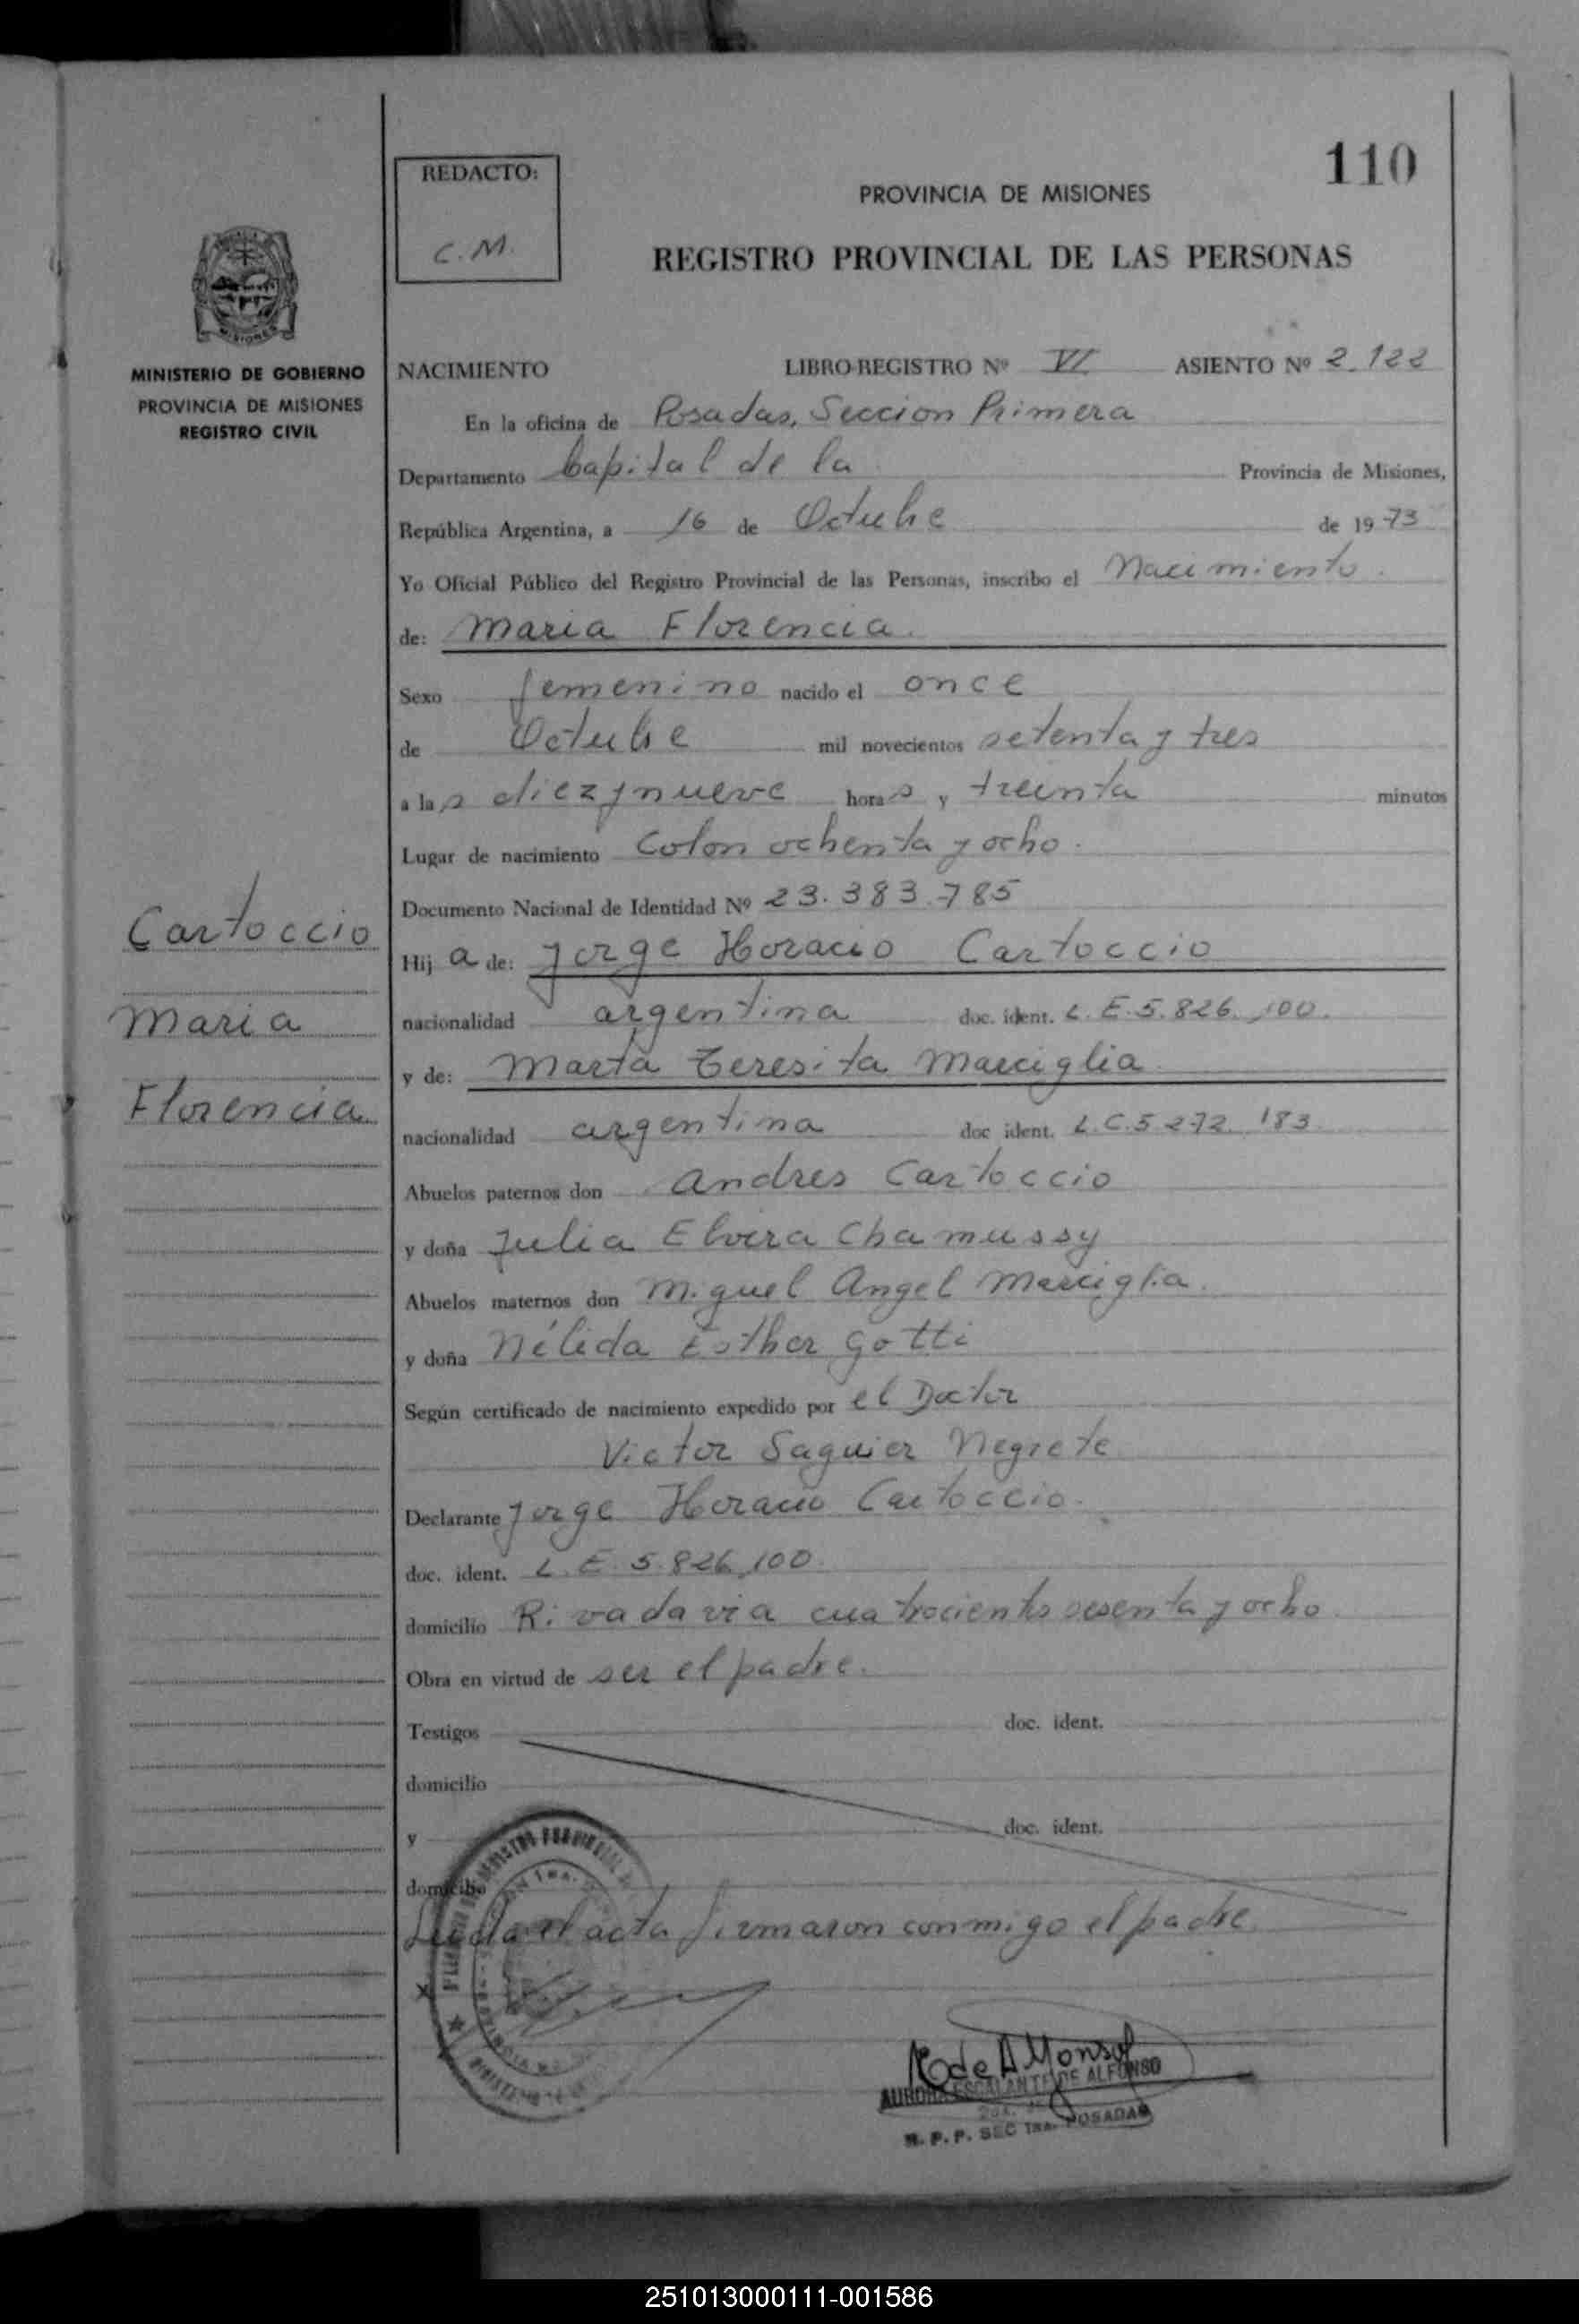 110
REDACTO:
C.M.
PROVINCIA DE MISIONES
REGISTRO PROVINCIAL DE LAS PERSONAS
MINISTERIO DE GOBIERNO
PROVINCIA DE MISIONES
REGISTRO CIVIL
NACIMIENTO LIBRO-REGISTRO Nº VI ASIENTO Nº 2.122
En la oficina de Posadas, Seccion Primera
Departamento Capital de la Provincia de Misiones,
República Argentina, a 16 de Octubre de 1973
Yo Oficial Público del Registro Provincial de las Personas, inscribo el Nacimiento.
de: Maria Florencia.
Sexo femenino nacido el once
de Octubre mil novecientos setenta y tres
a las diez y nueve horas y treinta minutos
Lugar de nacimiento Colon ochenta y ocho.
Documento Nacional de Identidad Nº 23.383.785
Cartoccio
Maria
Florencia
Hija de: Jorge Horacio Cartoccio
nacionalidad argentina doc. ident. L.E.5.826.100.
y de: Marta Teresita Marciglia
nacionalidad argentina doc ident. L.C.5.272.183
Abuelos paternos don Andres Cartoccio
y doña Julia Elvira Chamussy
Abuelos maternos don Miguel Angel Marciglia.
y doña Nélida Esther Gotti
Según certificado de nacimiento expedido por el Doctor
Victor Saguier Negrete
Declarante Jorge Horacio Cartoccio.
doc. ident. L.E. 5.826.100.
domicilio Rivadavia cuatrocientos sesenta y ocho.
Obra en virtud de ser el padre.
Testigos doc. ident.
domicilio
y doc. ident.
domicilio
Leida el acta firmaron conmigo el padre.
AURORA ESCALANTE DE ALFONSO
R.P.P. SEC 1RA. POSADAS
251013000111-001586